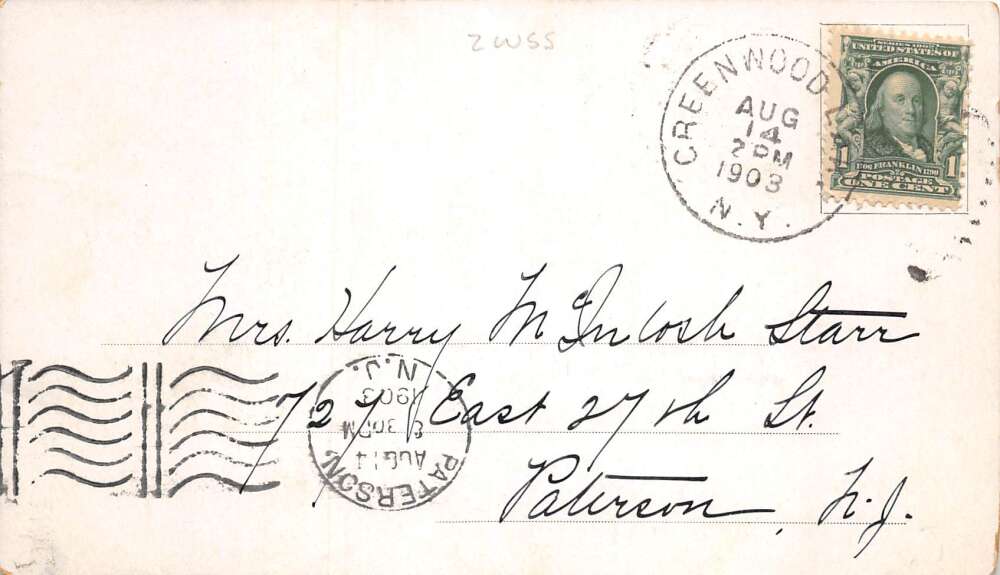 2WSS
GREENWOOD LAKE
AUG
14
2 PM
1903
N.Y.
SERIES 1902
UNITED STATES OF
AMERICA
1 1706 FRANKLIN 1790 1
POSTAGE
ONE CENT
Mrs. Harry McIntosh Starr
727 East 27th St.
Paterson, N.J.
PATERSON,
AUG 14
8 30PM
1903
N.J.